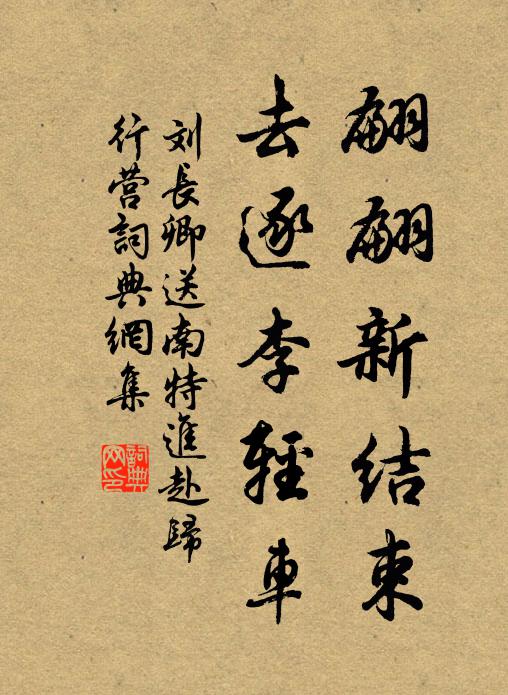 翩翩新结束
去逐李轻車
刘長卿送南特進赴歸
行营詞典網集
詞典网印